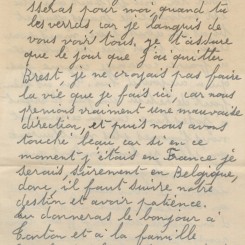 sseras pour moi, quand tu
les verras, car je languis de
vous voir tous, je t'assure
que le jour que j'ai quitter
Brest, je ne croyais pas faire
la vie que je fais ici, car nous
prenions vraiment une mauvaise
direction, et puis nous avons
touché beau car si en ce
moment j'étais en France je
serais, surement en Belgique,
donc, il faut suivre notre
destin et avoir patience.
Tu donneras le bonjour à
Tonton et à la famille